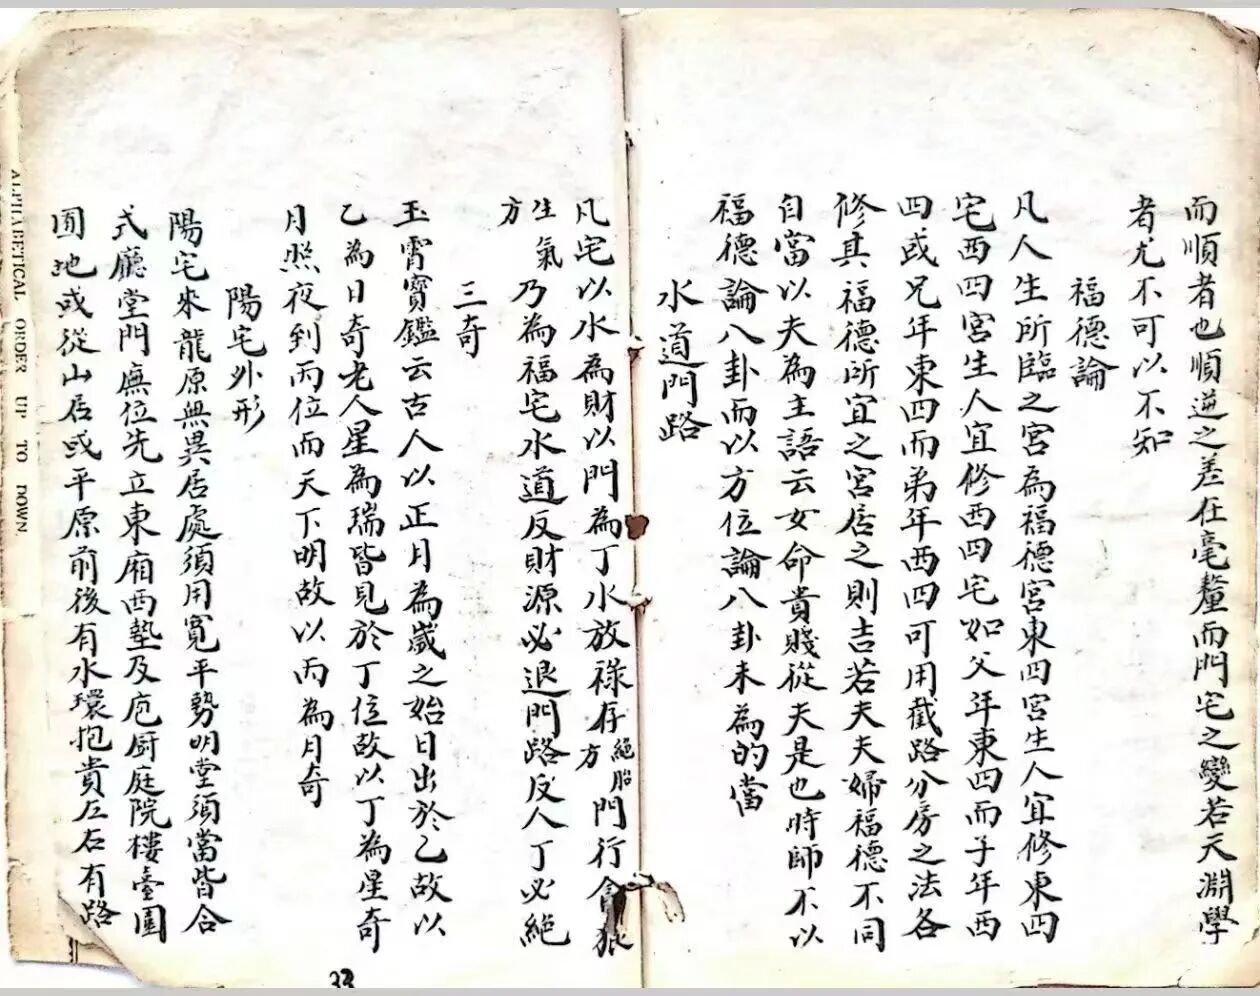 而順者也順逆之差在毫釐而門宅之變若天淵學
者尤不可以不知
福德論
凡人生所臨之宮為福德宮東四宮生人宜修東四
宅西四宮生人宜修西四宅如父年東四而子年西
四或兄年東四而弟年西四可用截路分房之法各
修其福德所宜之宮居之則吉若夫夫婦福德不同
自當以夫為主語云女命貴賤從夫是也時師不以
福德論八卦而以方位論八卦未為的當
水道門路
凡宅以水為財以門為丁水放祿存絕胎方門行貪狼
生氣方乃為福宅水道反財源必退門路反人丁必絕
三奇
玉霄寶鑑云古人以正月為歲之始日出於乙故以
乙為日奇老人星為瑞皆見於丁位故以丁為星奇
月照夜到丙位而天下明故以丙為月奇
陽宅外形
陽宅來龍原無異居處須用寬平勢明堂須當皆合
式廳堂門廡位先立東廂西塾及庖厨庭院樓臺園
圃地或從山居或平原前後有水環抱貴左右有路
33
ALPHABETICAL ORDER UP TO DOWN